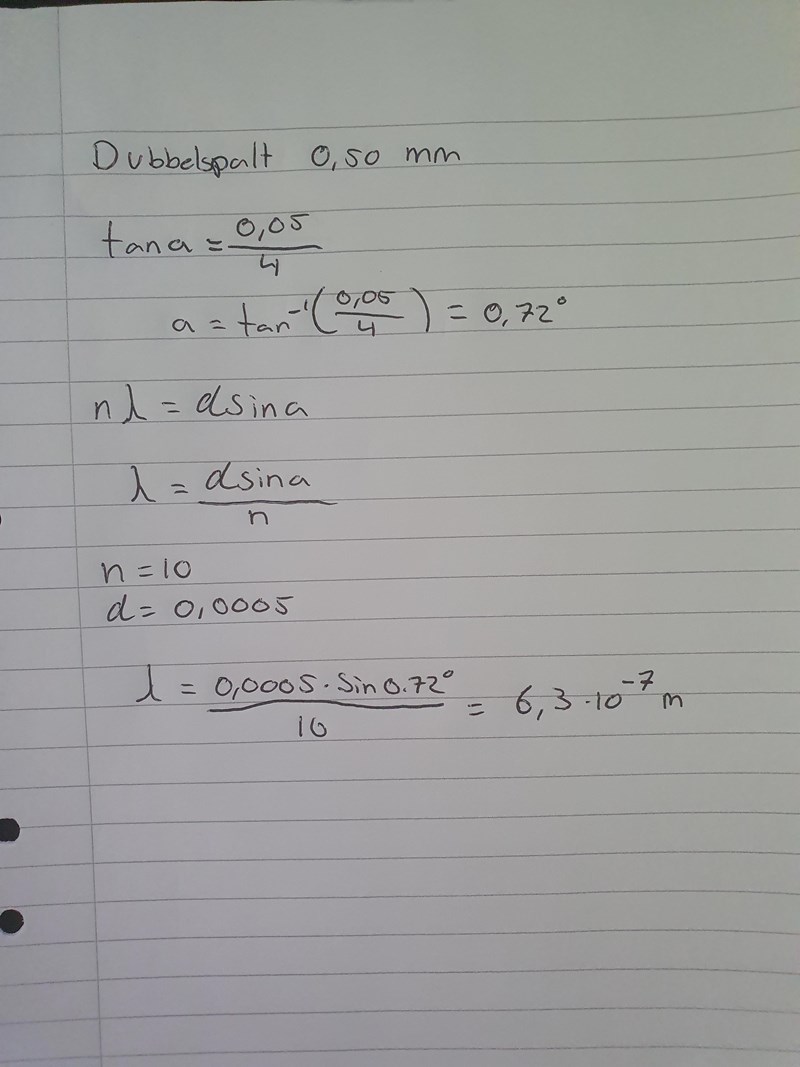 Dubbelspalt 0,50 mm
tan a = 0,05/4
a = tan⁻¹(0,05/4) = 0,72°
nλ = d sin a
λ = d sin a/n
n = 10
d = 0,0005
λ = 0,0005 · sin 0.72°/10 = 6,3 · 10⁻⁷ m